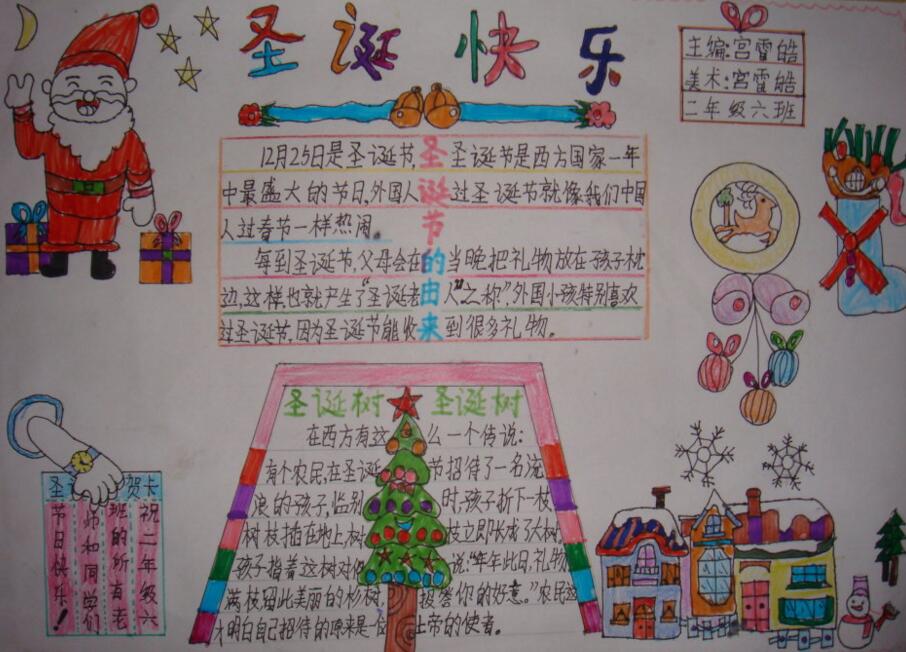 圣诞快乐
主编:宫雷皓
美术:宫雷皓
二年级六班
圣诞节的由来
12月25日是圣诞节,圣诞节是西方国家一年
中最盛大的节日,外国人过圣诞节就像我们中国
人过春节一样热闹。
每到圣诞节,父母会在当晚把礼物放在孩子枕
边,这样,也就产生了“圣诞老人”之称”,外国小孩特别喜欢
过圣诞节,因为圣诞节能收到很多礼物。
圣诞树 圣诞树
在西方有这么一个传说:
有个农民,在圣诞节招待了一名流
浪的孩子,临别时,孩子折下一枝
树枝插在地上,树枝立即长成了大树,
孩子指着这树对他说:“年年此日,礼物
满枝,留此美丽的杉树,报答你的好意。”农民这
才明白自己招待的原来是位上帝的使者。
圣 贺卡
祝二年级六
班的所有老
师和同学们
节日快乐!